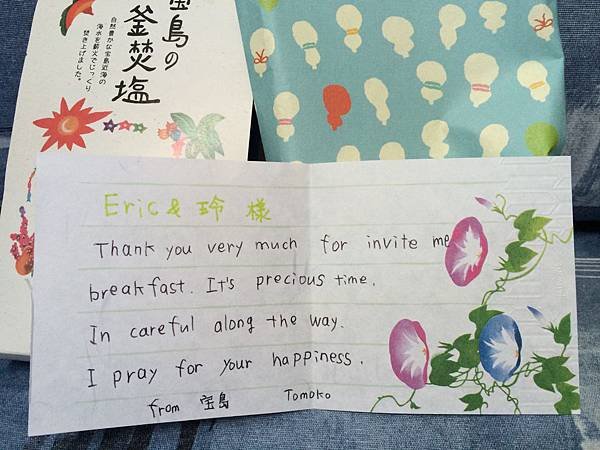 宝島の
釜焚塩
自然豊かな宝島近海の
海水を薪火でじっくり
焚き上げました。
Eric & 玲 様
Thank you very much for invite me
breakfast. It's precious time.
In careful along the way.
I pray for your happiness.
from 宝島 Tomoko